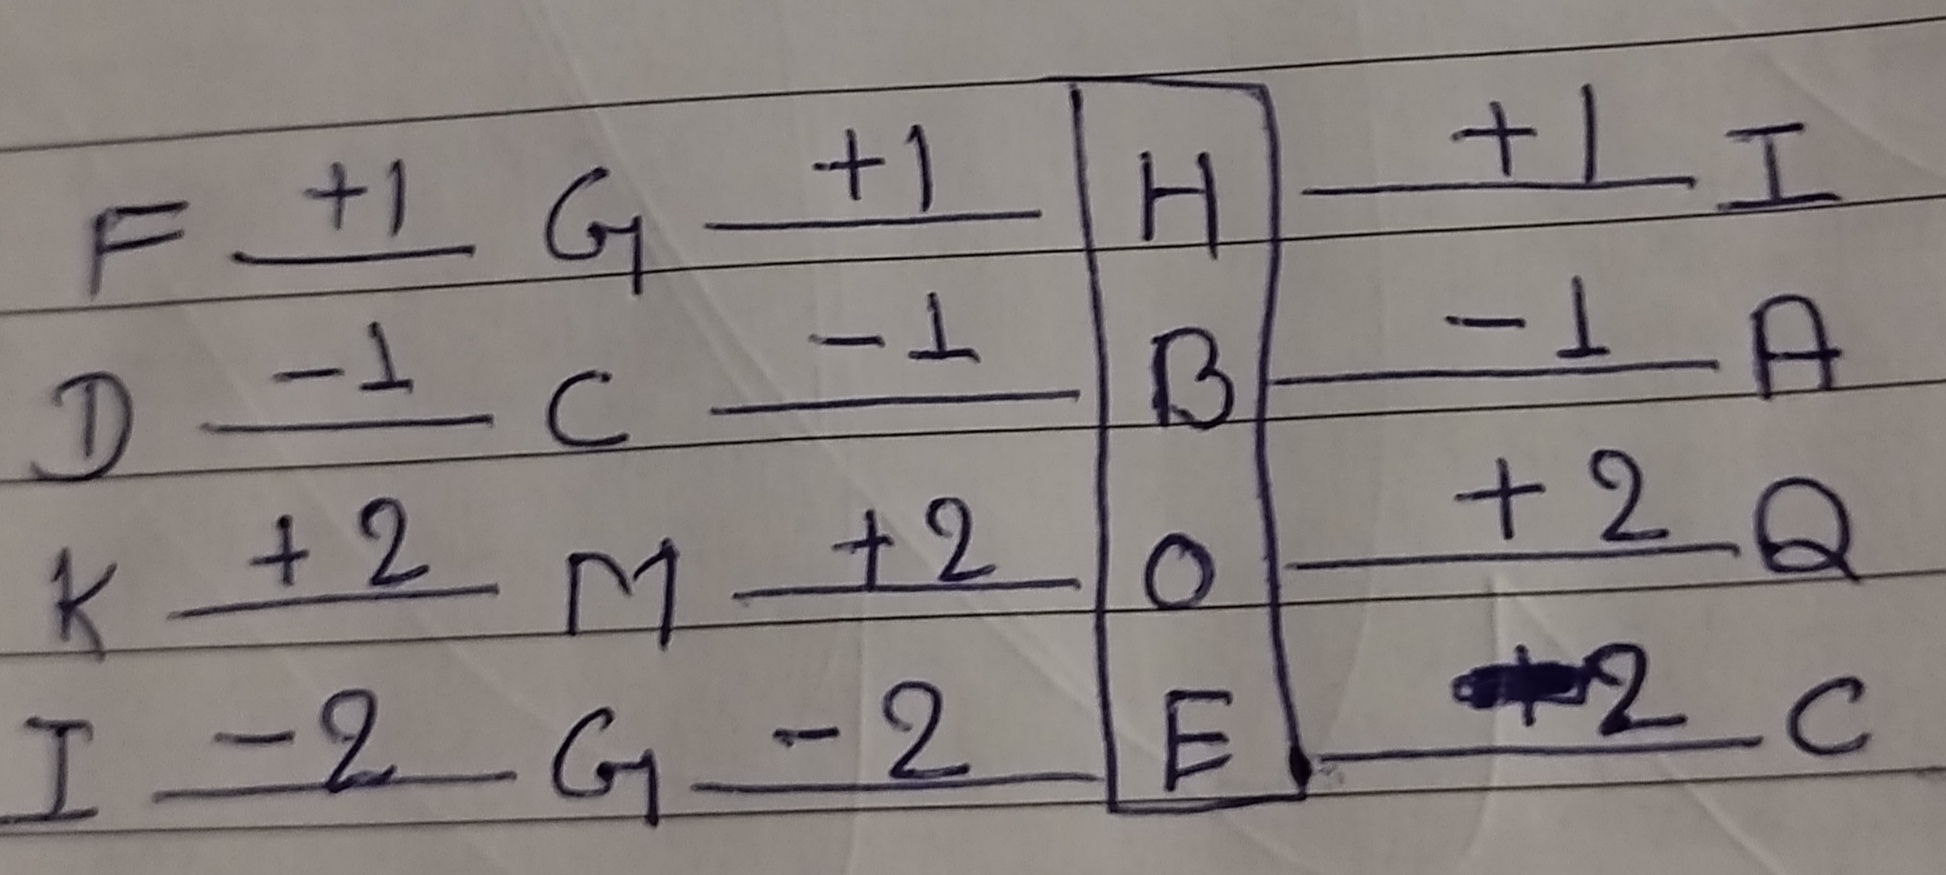 F +1 G +1 H +1 I
D -1 C -1 B -1 A
K +2 M +2 O +2 Q
I -2 G -2 E 2 C